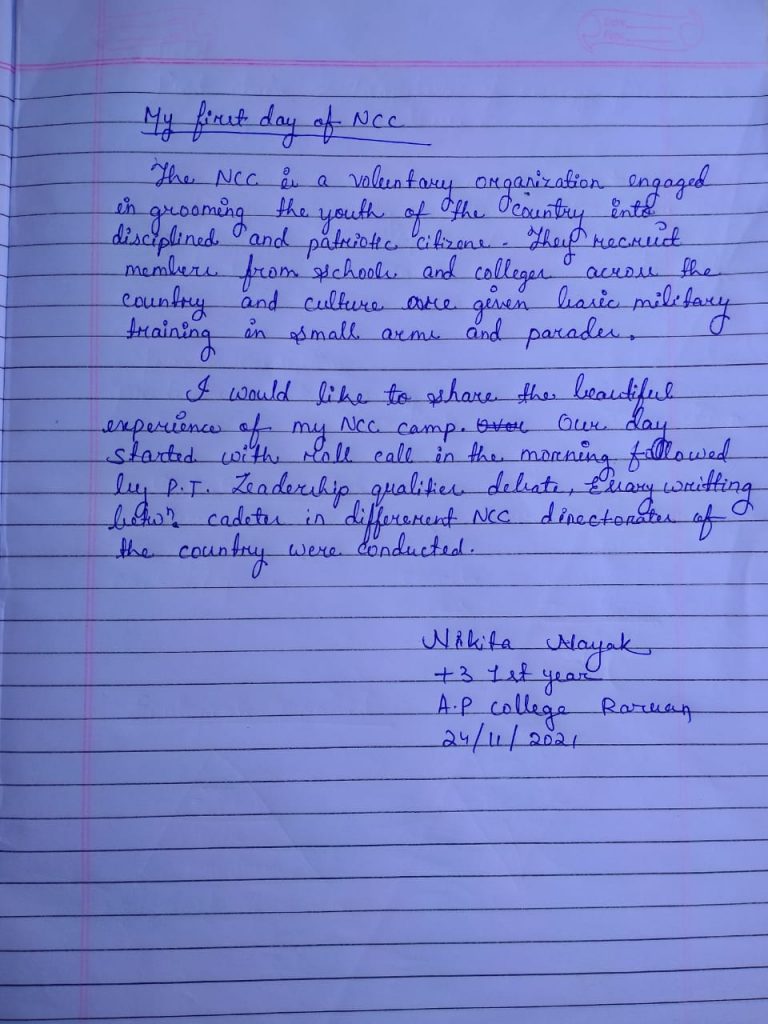 My first day of NCC
The NCC is a voluntary organization engaged
in grooming the youth of the country into
disciplined and patriotic citizens. They recruit
members from schools and colleges across the
country and culture are given basic military
training in small arms and parades.
I would like to share the beautiful
experience of my NCC camp. Our day
started with roll call in the morning followed
by P.T. Leadership qualifies debate, Essay writting
betwn cadetes in different NCC directorates of
the country were conducted.
Nikita Nayak
+3 1st year
A.P college Raruan
24/11/2021